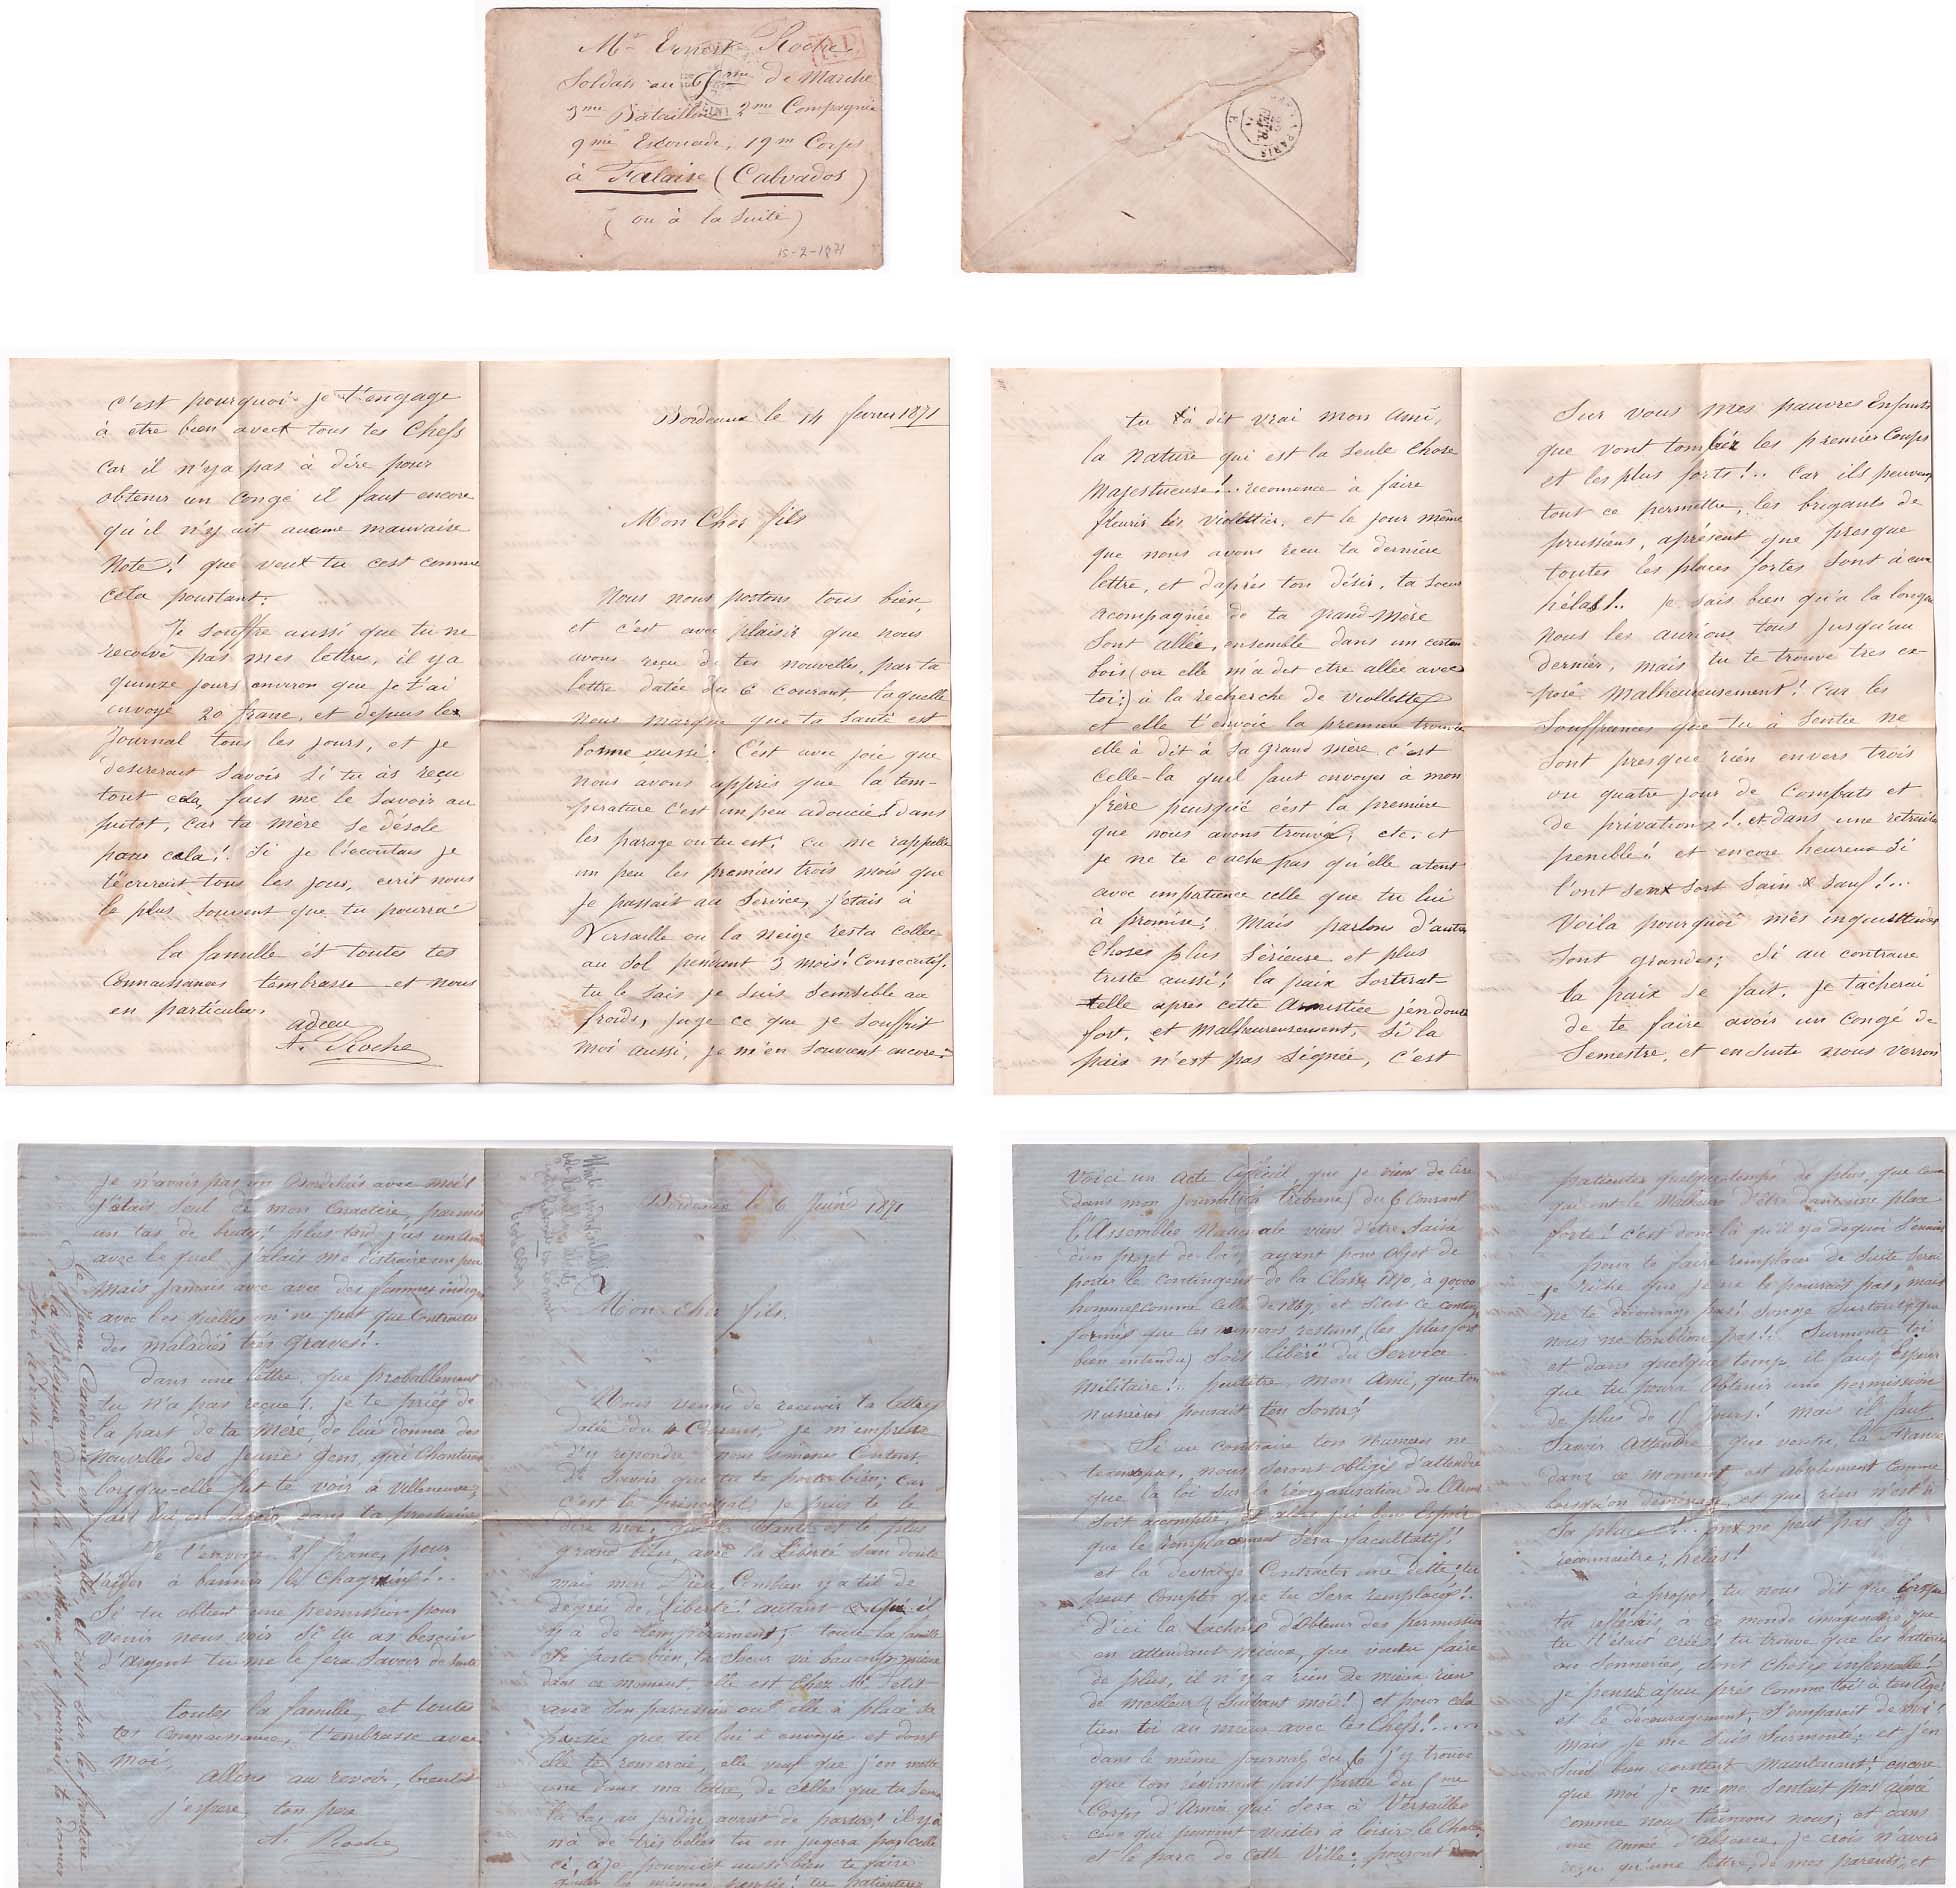 Mr Ernest Roche
Soldat au 65me de Marche
3me Bataillon 2me Compagnie
9me Escouade, 19m Corps
à Falaise (Calvados)
(ou à la suite)
15-2-1871
P.D
PARIS
Bordeaux le 14 fevrier 1871
Mon Cher fils
Nous nous portons tous bien,
et c'est avec plaisir que nous
avons reçu de tes nouvelles, par ta
lettre datée du 6 courant laquelle
nous marque que ta santé est
bonne aussi. C'est avec joie que
nous avons appris que la tem-
-perature c'est un peu adoucie! dans
les parage ou tu est; ca me rappelle
un peu les premiers trois mois que
je passait au service, j'etais à
Versaille ou la neige resta collée
au sol pendant 3 mois! consecutif.
tu le sais je suis sensible au
froids, juge ce que je souffrit
moi aussi, je m'en souvient encore!
tu à dit vrai mon ami,
la nature qui est la seule chose
Majestueuse!.. recomence à faire
fleurir les violettier, et le jour même
que nous avons reçu ta dernière
lettre, et d'aprés ton désir, ta soeur
acompagnée de ta grand-mère
sont allée, ensemble dans un certain
bois (ou elle m'a dit etre allée avec
toi;) à la recherche de violettes
et elle t'envoie la premiere trouvée
elle à dit à sa grand mère c'est
celle-la quil faut envoyer à mon
frère puisque c'est la première
que nous avons trouvée, etc. et
je ne te cache pas qu'elle atent
avec impatience celle que tu lui
à promise; Mais parlons d'autre
choses plus sérieuse et plus
triste aussi! la paix sortirat
telle après cette Armistiée j'en doute
fort, et malheureusement, si la
paix n'est pas signée, c'est
Sur vous mes pauvres Enfants
que vont tomber les premier coups
et les plus forts!.. Car ils peuvent
tout ce permettre, les brigants de
prussiens, aprésent que presque
toutes les places fortes sont à eux
hélas!.. je sais bien qu'a la longue
nous les aurions tous jusqu'au
dernier, mais tu te trouve tres ex-
-posé malheureusement! Car les
souffrances que tu à sentie ne
sont presque rien envers trois
ou quatre jour de combats et
de privations!. et dans une retraite
penible! et encore heureux si
l'ont sort sain & sauf!...
Voila pourquoi mes inquiettudes
sont grandes; si au contraire
la paix se fait, je tacherai
de te faire avoir un congé de
semestre, et ensuite nous verron
c'est pourquoi je t'engage
à etre bien avec tous tes Chefs
car il n'y a pas à dire pour
obtenir un congé il faut encore
qu'il n'y ait aucune mauvaise
Note! que veux tu cest comme
cela pourtant.
Je souffre aussi que tu ne
recoive pas mes lettres, il y a
quinze jours environ que je t'ai
envoyé 20 franc, et depuis le
Journal tous les jours, et je
desirerait savoir si tu às reçu
tout cela, fais me le savoir au
putot, car ta mère se désole
pour cela!. Si je l'ecoutais je
t'écrirait tous les jour, ecrit nous
le plus souvent que tu pourra
la famille et toutes tes
Connaissances t'embrasse et nous
en particulier.
adieu
A. Roche
Bordeaux le 6 Juin 1871
Mon cher fils.
Nous venons de recevoir ta lettre
datée du 4 Courant, je m'empresse
d'y repondre nous sommes Content
de savoir que tu te porte bien; car
c'est le principal, je puis te le
dire moi, que la santé est le plus
grand bien, avec la Liberté sans doute
mais mon Dieu, Combien y a til de
degrès de Liberté! autant qu'il
y à de tempérament; toute la famille
se porte bien, ta soeur va beaucoup mieux
dans ce moment, elle est chez M. Petit
avec son paroissien ou elle à placé ta
pensée que tu lui à envoyée et dont
elle te remercie, elle veut que j'en mette
une dans ma lettre, de celles que tu sema
la bas au jardin avant de partir! il y
n'a de très belles tu en jugera par celle
ci, je pouvait aussi bien te faire
Voici un acte que je viens de lire
dans mon journal (la tribune) du 6 Courant
l'Assemblée Nationale viens d'être saisie
d'un projet de loi, ayant pour objet de
porter le contingent de la Classe 1870, à 90000
hommes comme celle de 1869, et dit ce contin.
formés que les numeros restans, les plus fort
bien entendu) sois libéré du service
militaire!.. peutetre, mon Ami, que ton
numéros pourait t'en sortir!
Si au contraire ton Numero ne
t'exempt pas, nous seront obligé d'attendre
que la loi sur la réorganisation de l'Armée
soit accomplie, et alors j'ai bon espoir
que le remplacement sera facultatif!
et la devraije Contracter une dette, tu
peut compter que tu sera remplacer!.
D'ici la tachons d'obtenir des permission
en attendant mieux, que veux tu faire
de plus, il n'y a rien de mieux rien
de meilleur (suivant moi!) et pour cela
tien toi au mieux avec tes Chefs!....
dans le même journal, du 6 j'y trouve
que ton régiment fait partie du 5me
Corps d'Armée qui sera à Versailles
ceux qui pouront visiter à loisir le Chateau
et le parc de cette Ville; pouront
patienter quelque temps de plus, que ceux
qui ont le Malheur d'être dans une place
forte! c'est donc là qu'il y a de quoi s'ennuier
pour te faire remplacer de suite serai
-je riche que je ne le pourrais pas, mais
ne te décourage pas! songe surtout que
nous ne t'oublions pas!. Surmonte toi
et dans quelque temp, il faut esperer
que tu poura obtenir une permission
de plus de 15 jours! mais il faut
savoir attendre, que veux tu la France
dans ce moment est absolument comme
lorsqu'on déménage, et que rien n'est à
sa place!... on ne peut pas s'y
reconnaitre; hélas!
à propos, tu nous dit que lorsque
tu reflechis, à ce monde imaginaire que
tu t'était créé! tu trouve que les batteries
ou sonneries, sont choses infernalle!
je pensée àpeu près comme toi à ton âge!
et le découragement, s'emparait de moi!
mais je me suis surmonté; et j'en
suis bien content maintenant! encore
que moi je ne me sentait pas aimé
comme nous t'aimons nous; et dans
une année d'absence, je crois n'avoir
reçu qu'une lettre, de mes parents, et
je n'avais pas un Bordelais avec moi!
J'étais seul de mon caractère, parmis
un tas de brutes! plus tard j'us un ami
avec le quel j'alais me distraire un peu
mais jamais avec des femmes indigne
avec les quelles on ne peut que contracter
des maladies très graves!.
Dans une lettre, que probablement
tu n'a pas reçue!. je te priés de
la part de ta mère, de lui donner des
nouvelles des jeunes gens, qui chanterent
lorsque-elle fut te voir à Villeneuve,
fait lui en savoir dans ta prochaine,
Je t'envoye 25 franc, pour
t'aider à bannir le chagrin!..
Si tu obtient une permission pour
venir nous voir si tu as besoin
d'argent tu me le fera savoir de suite
toutes la famille, et toutes
tes connaissance, t'embrasse avec
moi.
Allons au revoir, bientôt
j'espere, ton pere
A. Roche
(le jeune est retablie, et est sur les frontiere
de la Belgique, dont la prochaine je pourrais te donner
son adresse,